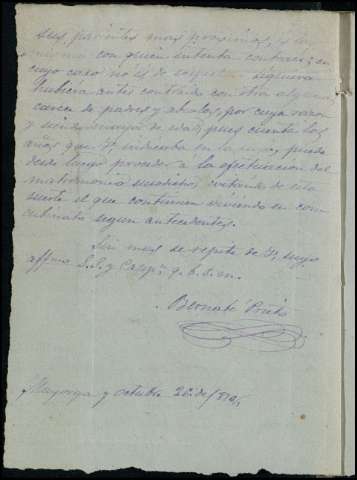 sus parientes mas proximos, es la
misma con quien intenta contraer; en
cuyo caso no es de siquiera
hubiera antes contraido con otra alguna
carece de padres y abuelos, por cuya razon
y siendo mayor de edad, pues cuenta los
años que V. indica en la suya, puede
desde luego proceder a la efectuacion del
matrimonio susodicho, evitando de esta
suerte el que continuen viviendo en con
cubinato segun antecedentes.
Sin mas se repite de V. suyo
affmo S.S. y Capp.n q. b. s. m.
Bernabé Prieto
Mayorga y octubre 26 de